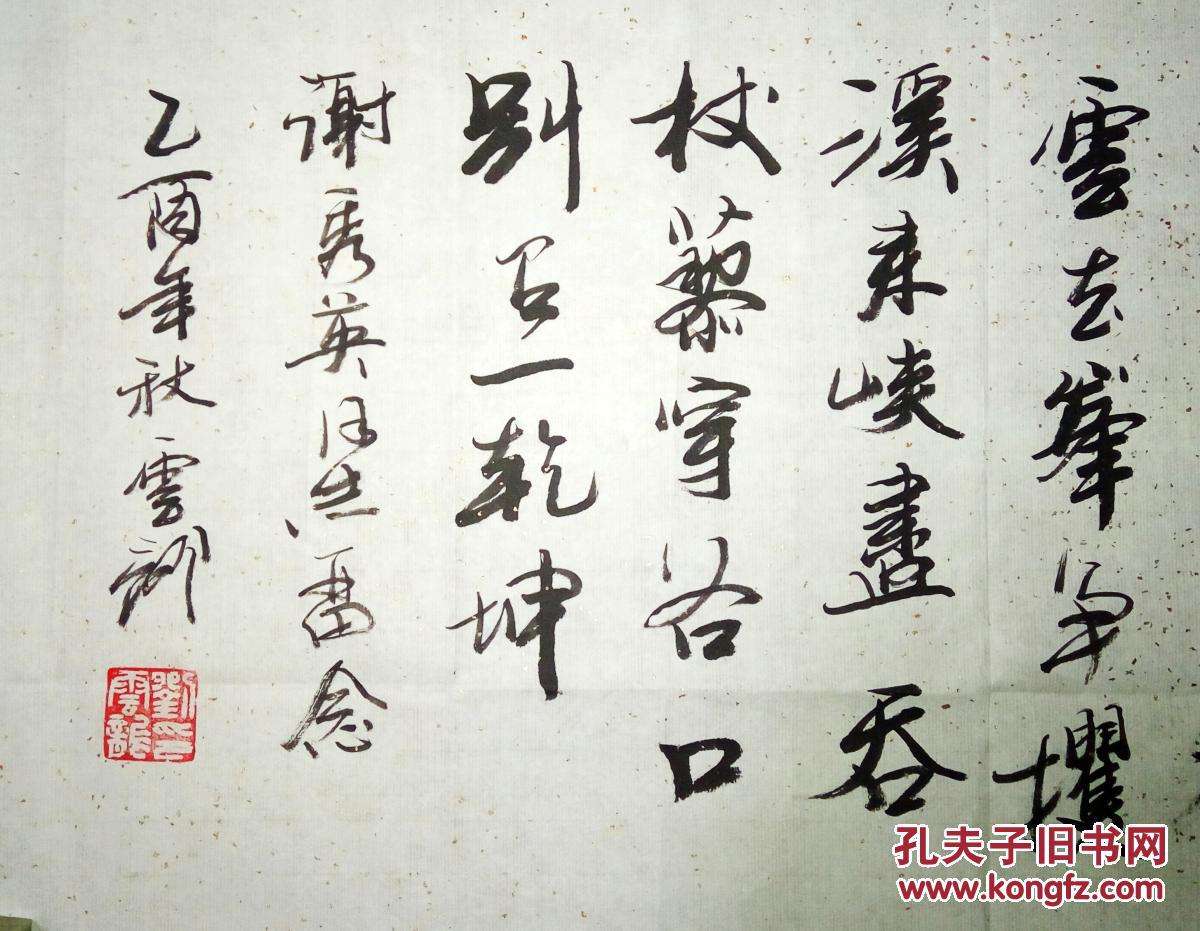 雲去峯争攫
溪来峡盡吞
杖藜穿谷口
别一乾坤
謝秀英同志畱念
乙酉年秋雲龍
劉印雲龍
孔夫子旧书网
www.kongfz.com